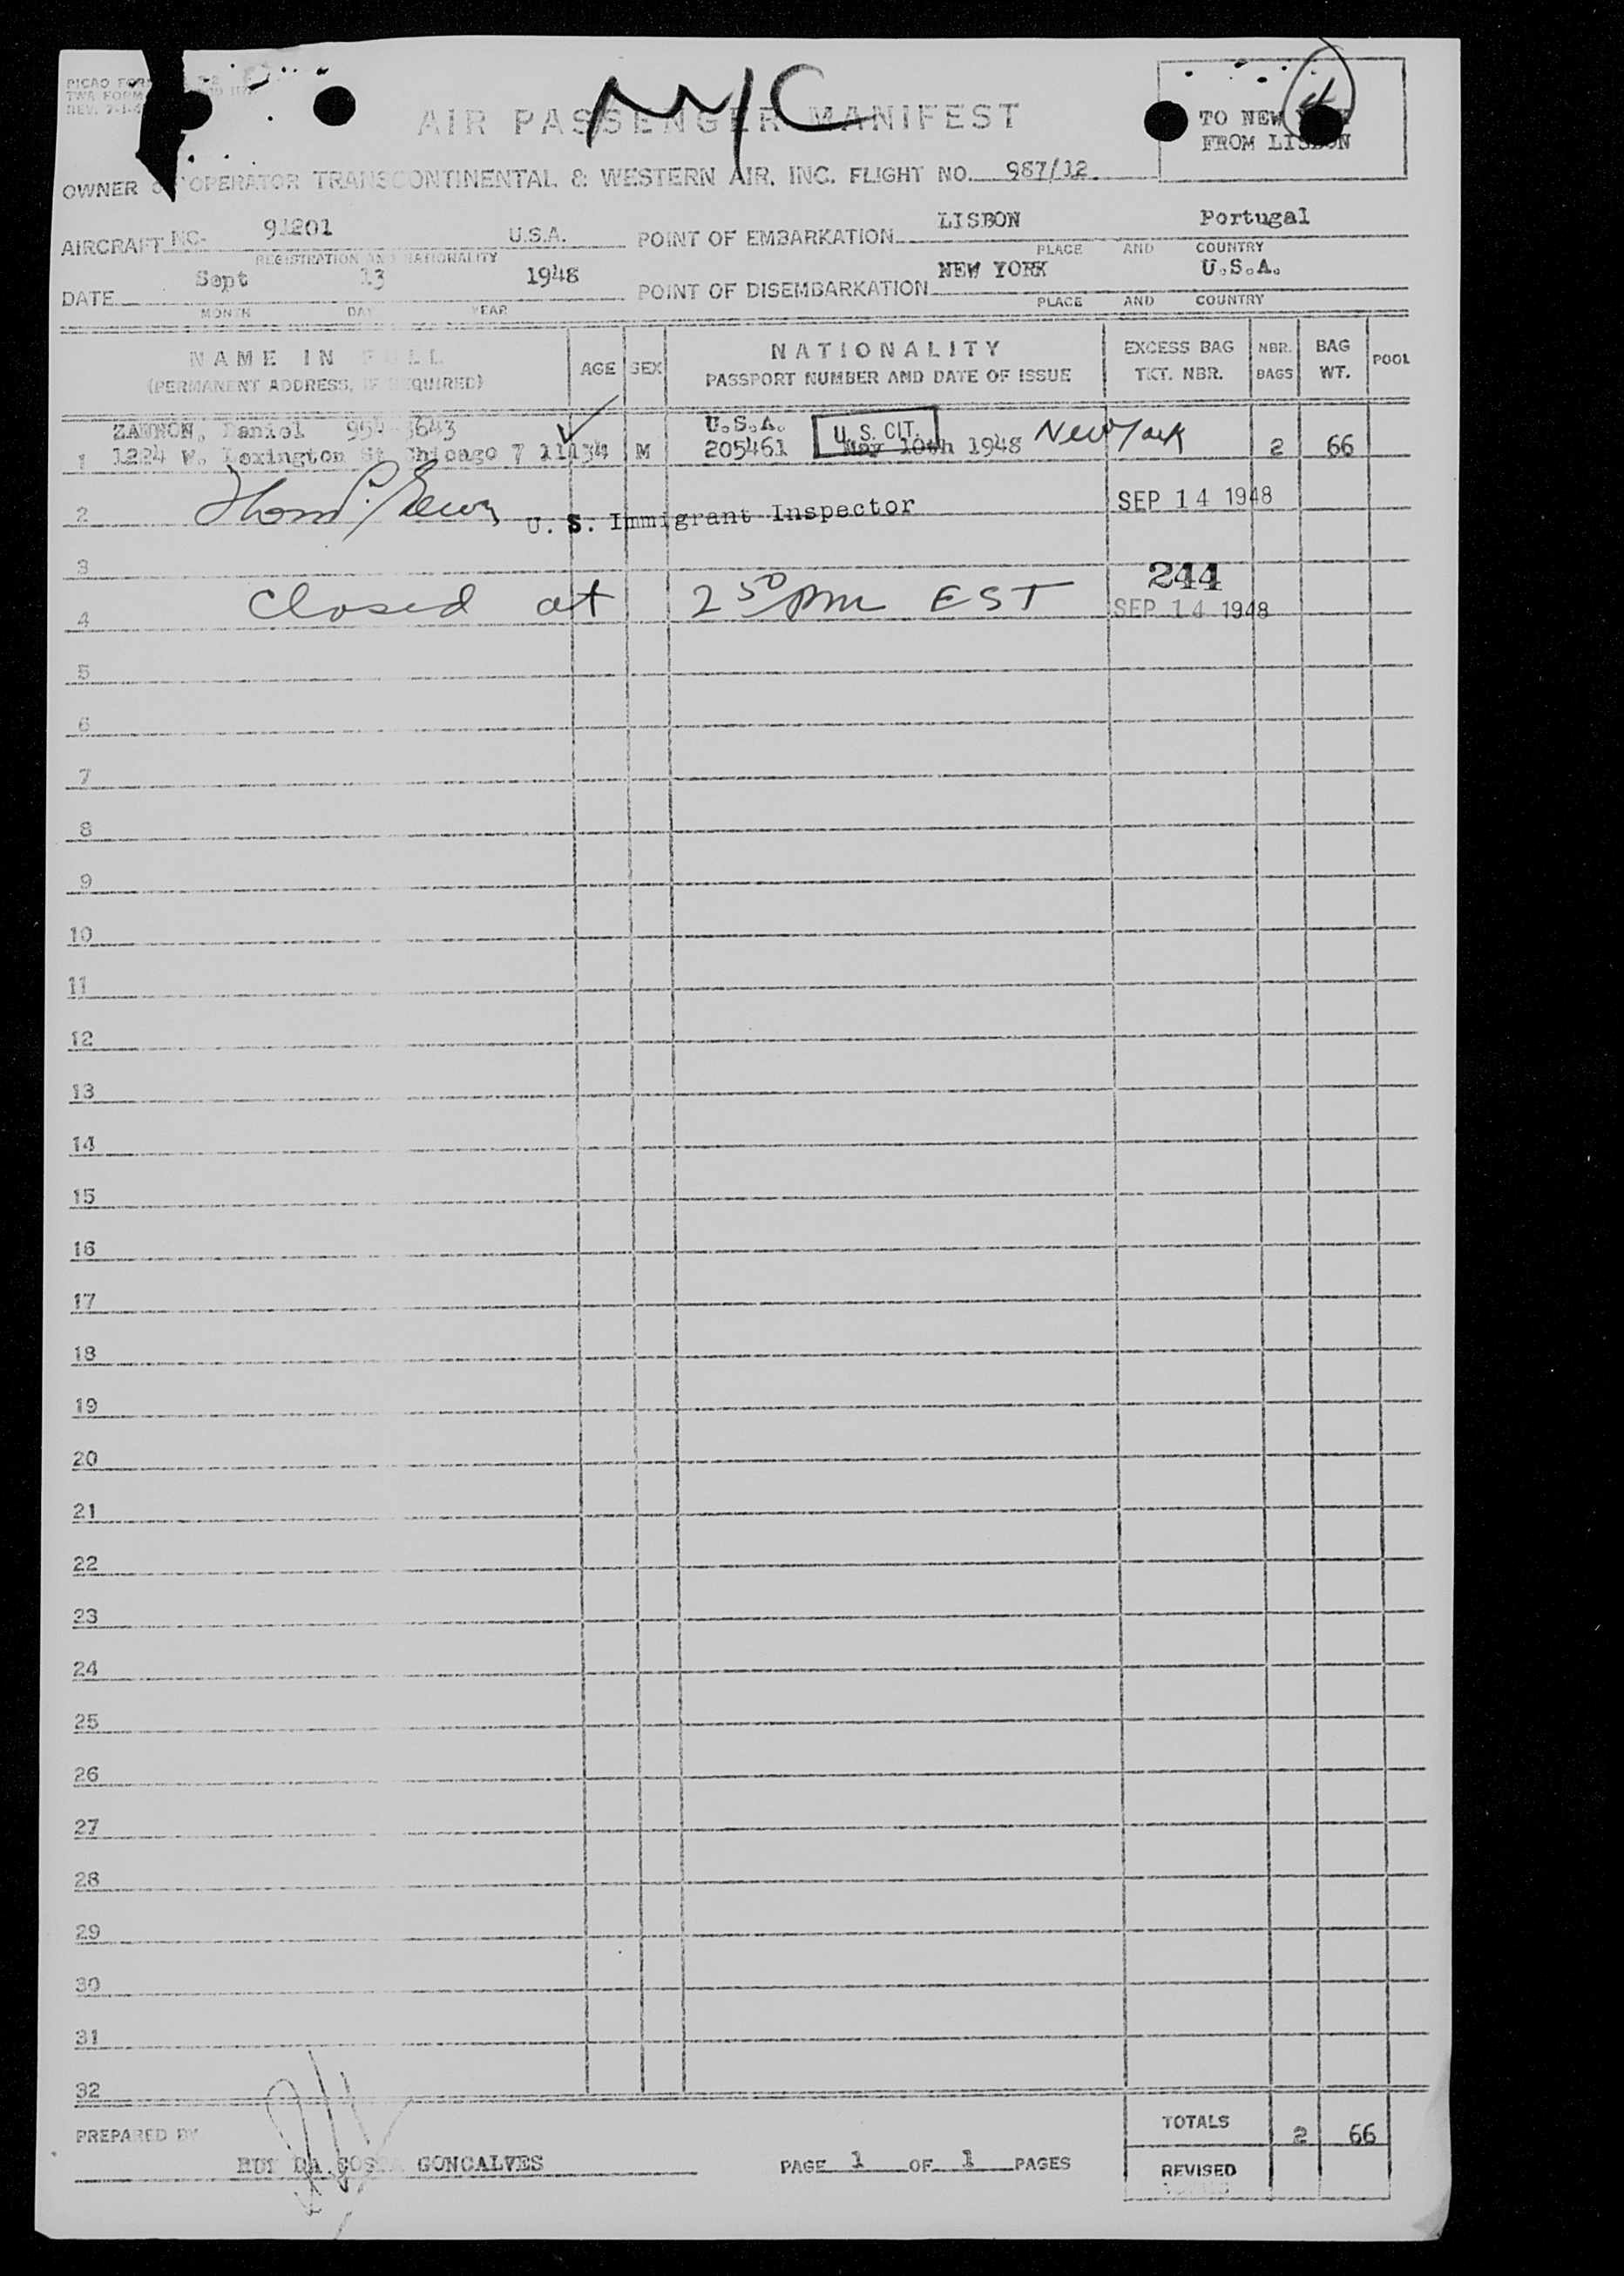 PICAO FORM
TWA FORM
REV. 7-1-4
N/C
AIR PASSENGER MANIFEST
TO NEW
FROM LISBON
OWNER OPERATOR TRANSCONTINENTAL & WESTERN AIR, INC. FLIGHT NO. 987/12
AIRCRAFT NC- 91201 U.S.A. POINT OF EMBARKATION LISBON Portugal
REGISTRATION AND NATIONALITY PLACE AND COUNTRY
DATE Sept 13 1948 POINT OF DISEMBARKATION NEW YORK U.S.A.
MONTH DAY YEAR PLACE AND COUNTRY
NAME IN FULL AGE SEX NATIONALITY EXCESS BAG NBR. BAG POOL
(PERMANENT ADDRESS, IF REQUIRED) PASSPORT NUMBER AND DATE OF ISSUE TKT. NBR. BAGS WT.
Daniel U.S.A. U.S. CIT. New York
1 1224 W. Lexington St Chicago 7 34 M 205461 May 10th 1948 2 66
2 U. S. Immigrant Inspector SEP 14 1948
3 244
4 Closed at 2 50 pm EST SEP 14 1948
5
6
7
8
9
10
11
12
13
14
15
16
17
18
19
20
21
22
23
24
25
26
27
28
29
30
31
32
TOTALS 2 66
PREPARED BY
RUY DA COSTA GONCALVES PAGE 1 OF 1 PAGES REVISED